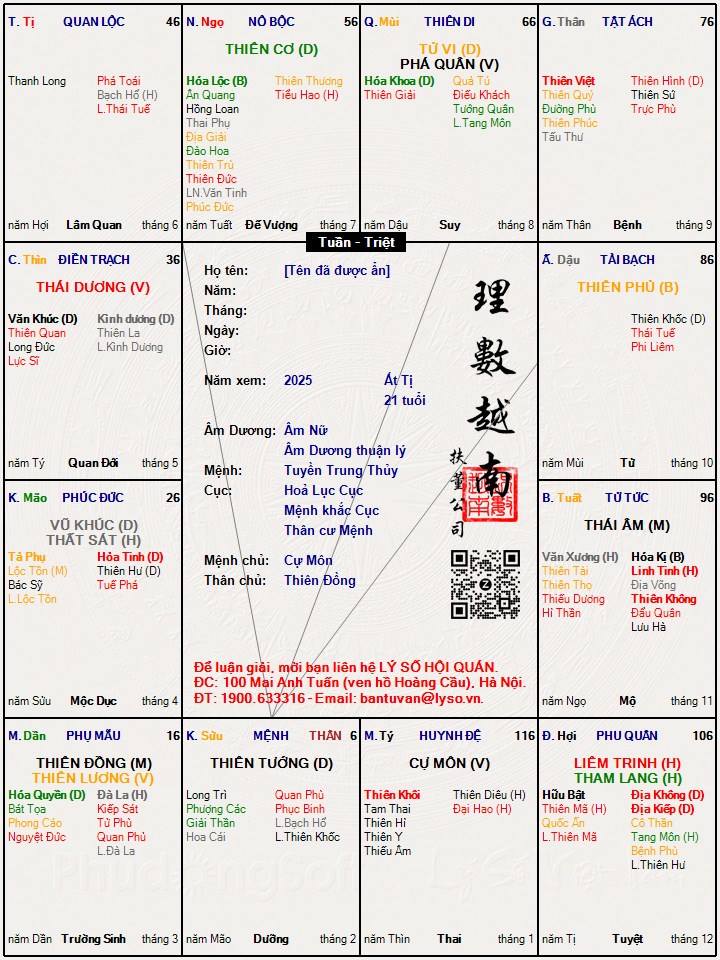 T. Tị QUAN LỘC 46
Thanh Long Phá Toái
Bạch Hổ (H)
L.Thái Tuế
năm Hợi Lâm Quan tháng 6
N. Ngọ NÔ BỘC 56
THIÊN CƠ (D)
Hóa Lộc (B) Thiên Thương
Ân Quang Tiểu Hao (H)
Hồng Loan
Thai Phụ
Địa Giải
Đào Hoa
Thiên Trù
Thiên Đức
LN.Văn Tinh
Phúc Đức
năm Tuất Đế Vượng tháng 7
Q. Mùi THIÊN DI 66
TỬ VI (D)
PHÁ QUÂN (V)
Hóa Khoa (D) Quả Tú
Thiên Giải Điếu Khách
Tướng Quân
L.Tang Môn
năm Dậu Suy tháng 8
G. Thân TẬT ÁCH 76
Thiên Việt Thiên Hình (D)
Thiên Quý Thiên Sứ
Đường Phù Trực Phù
Thiên Phúc
Tấu Thư
năm Thân Bệnh tháng 9
Tuần - Triệt
C. Thìn ĐIỀN TRẠCH 36
THÁI DƯƠNG (V)
Văn Khúc (D) Kình dương (D)
Thiên Quan Thiên La
Long Đức L.Kình Dương
Lực Sĩ
năm Tý Quan Đới tháng 5
Họ tên: [Tên đã được ẩn]
Năm:
Tháng:
Ngày:
Giờ:
Năm xem: 2025 Ất Tị
21 tuổi
Âm Dương: Âm Nữ
Âm Dương thuận lý
Mệnh: Tuyền Trung Thủy
Cục: Hoả Lục Cục
Mệnh khắc Cục
Thân cư Mệnh
Mệnh chủ: Cự Môn
Thân chủ: Thiên Đồng
理數越南
扶董公司
Z
Để luận giải, mời bạn liên hệ LÝ SỐ HỘI QUÁN.
ĐC: 100 Mai Anh Tuấn (ven hồ Hoàng Cầu), Hà Nội.
ĐT: 1900.633316 - Email: bantuvan@lyso.vn.
Ấ. Dậu TÀI BẠCH 86
THIÊN PHỦ (B)
Thiên Khốc (D)
Thái Tuế
Phi Liêm
năm Mùi Tử tháng 10
K. Mão PHÚC ĐỨC 26
VŨ KHÚC (D)
THẤT SÁT (H)
Tả Phụ Hỏa Tinh (D)
Lộc Tồn (M) Thiên Hư (D)
Bác Sỹ Tuế Phá
L.Lộc Tồn
năm Sửu Mộc Dục tháng 4
B. Tuất TỬ TỨC 96
THÁI ÂM (M)
Văn Xương (H) Hóa Kị (B)
Thiên Tài Linh Tinh (H)
Thiên Thọ Địa Võng
Thiếu Dương Thiên Không
Hỉ Thần Đẩu Quân
Lưu Hà
năm Ngọ Mộ tháng 11
M. Dần PHỤ MẪU 16
THIÊN ĐỒNG (M)
THIÊN LƯƠNG (V)
Hóa Quyền (D) Đà La (H)
Bát Tọa Kiếp Sát
Phong Cáo Tử Phù
Nguyệt Đức Quan Phủ
L.Đà La
năm Dần Trường Sinh tháng 3
K. Sửu MỆNH THÂN 6
THIÊN TƯỚNG (D)
Long Trì Quan Phù
Phượng Các Phục Binh
Giải Thần L.Bạch Hổ
Hoa Cái L.Thiên Khốc
năm Mão Dưỡng tháng 2
M. Tý HUYNH ĐỆ 116
CỰ MÔN (V)
Thiên Khôi Thiên Diêu (H)
Tam Thai Đại Hao (H)
Thiên Hỉ
Thiên Y
Thiếu Âm
năm Thìn Thai tháng 1
Đ. Hợi PHU QUÂN 106
LIÊM TRINH (H)
THAM LANG (H)
Hữu Bật Địa Không (D)
Thiên Mã (H) Địa Kiếp (D)
Quốc Ấn Cô Thần
L.Thiên Mã Tang Môn (H)
Bệnh Phù
L.Thiên Hư
năm Tị Tuyệt tháng 12